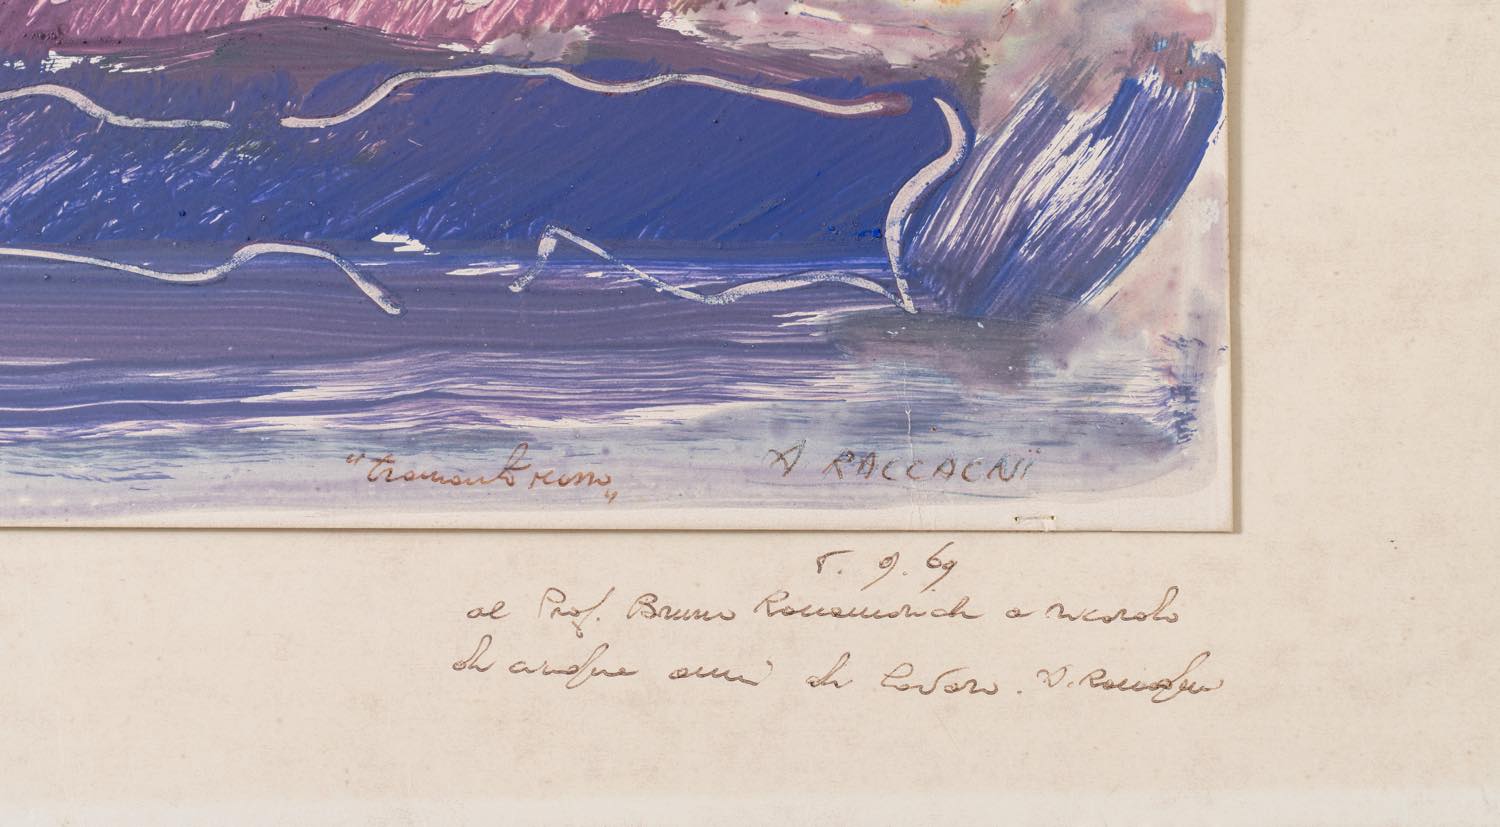 "tramonto rosso"
A RACCAGNI
5. 9. 69
al Prof. Bruno a ricordo
di cinque anni di lavoro. A. Raccagni